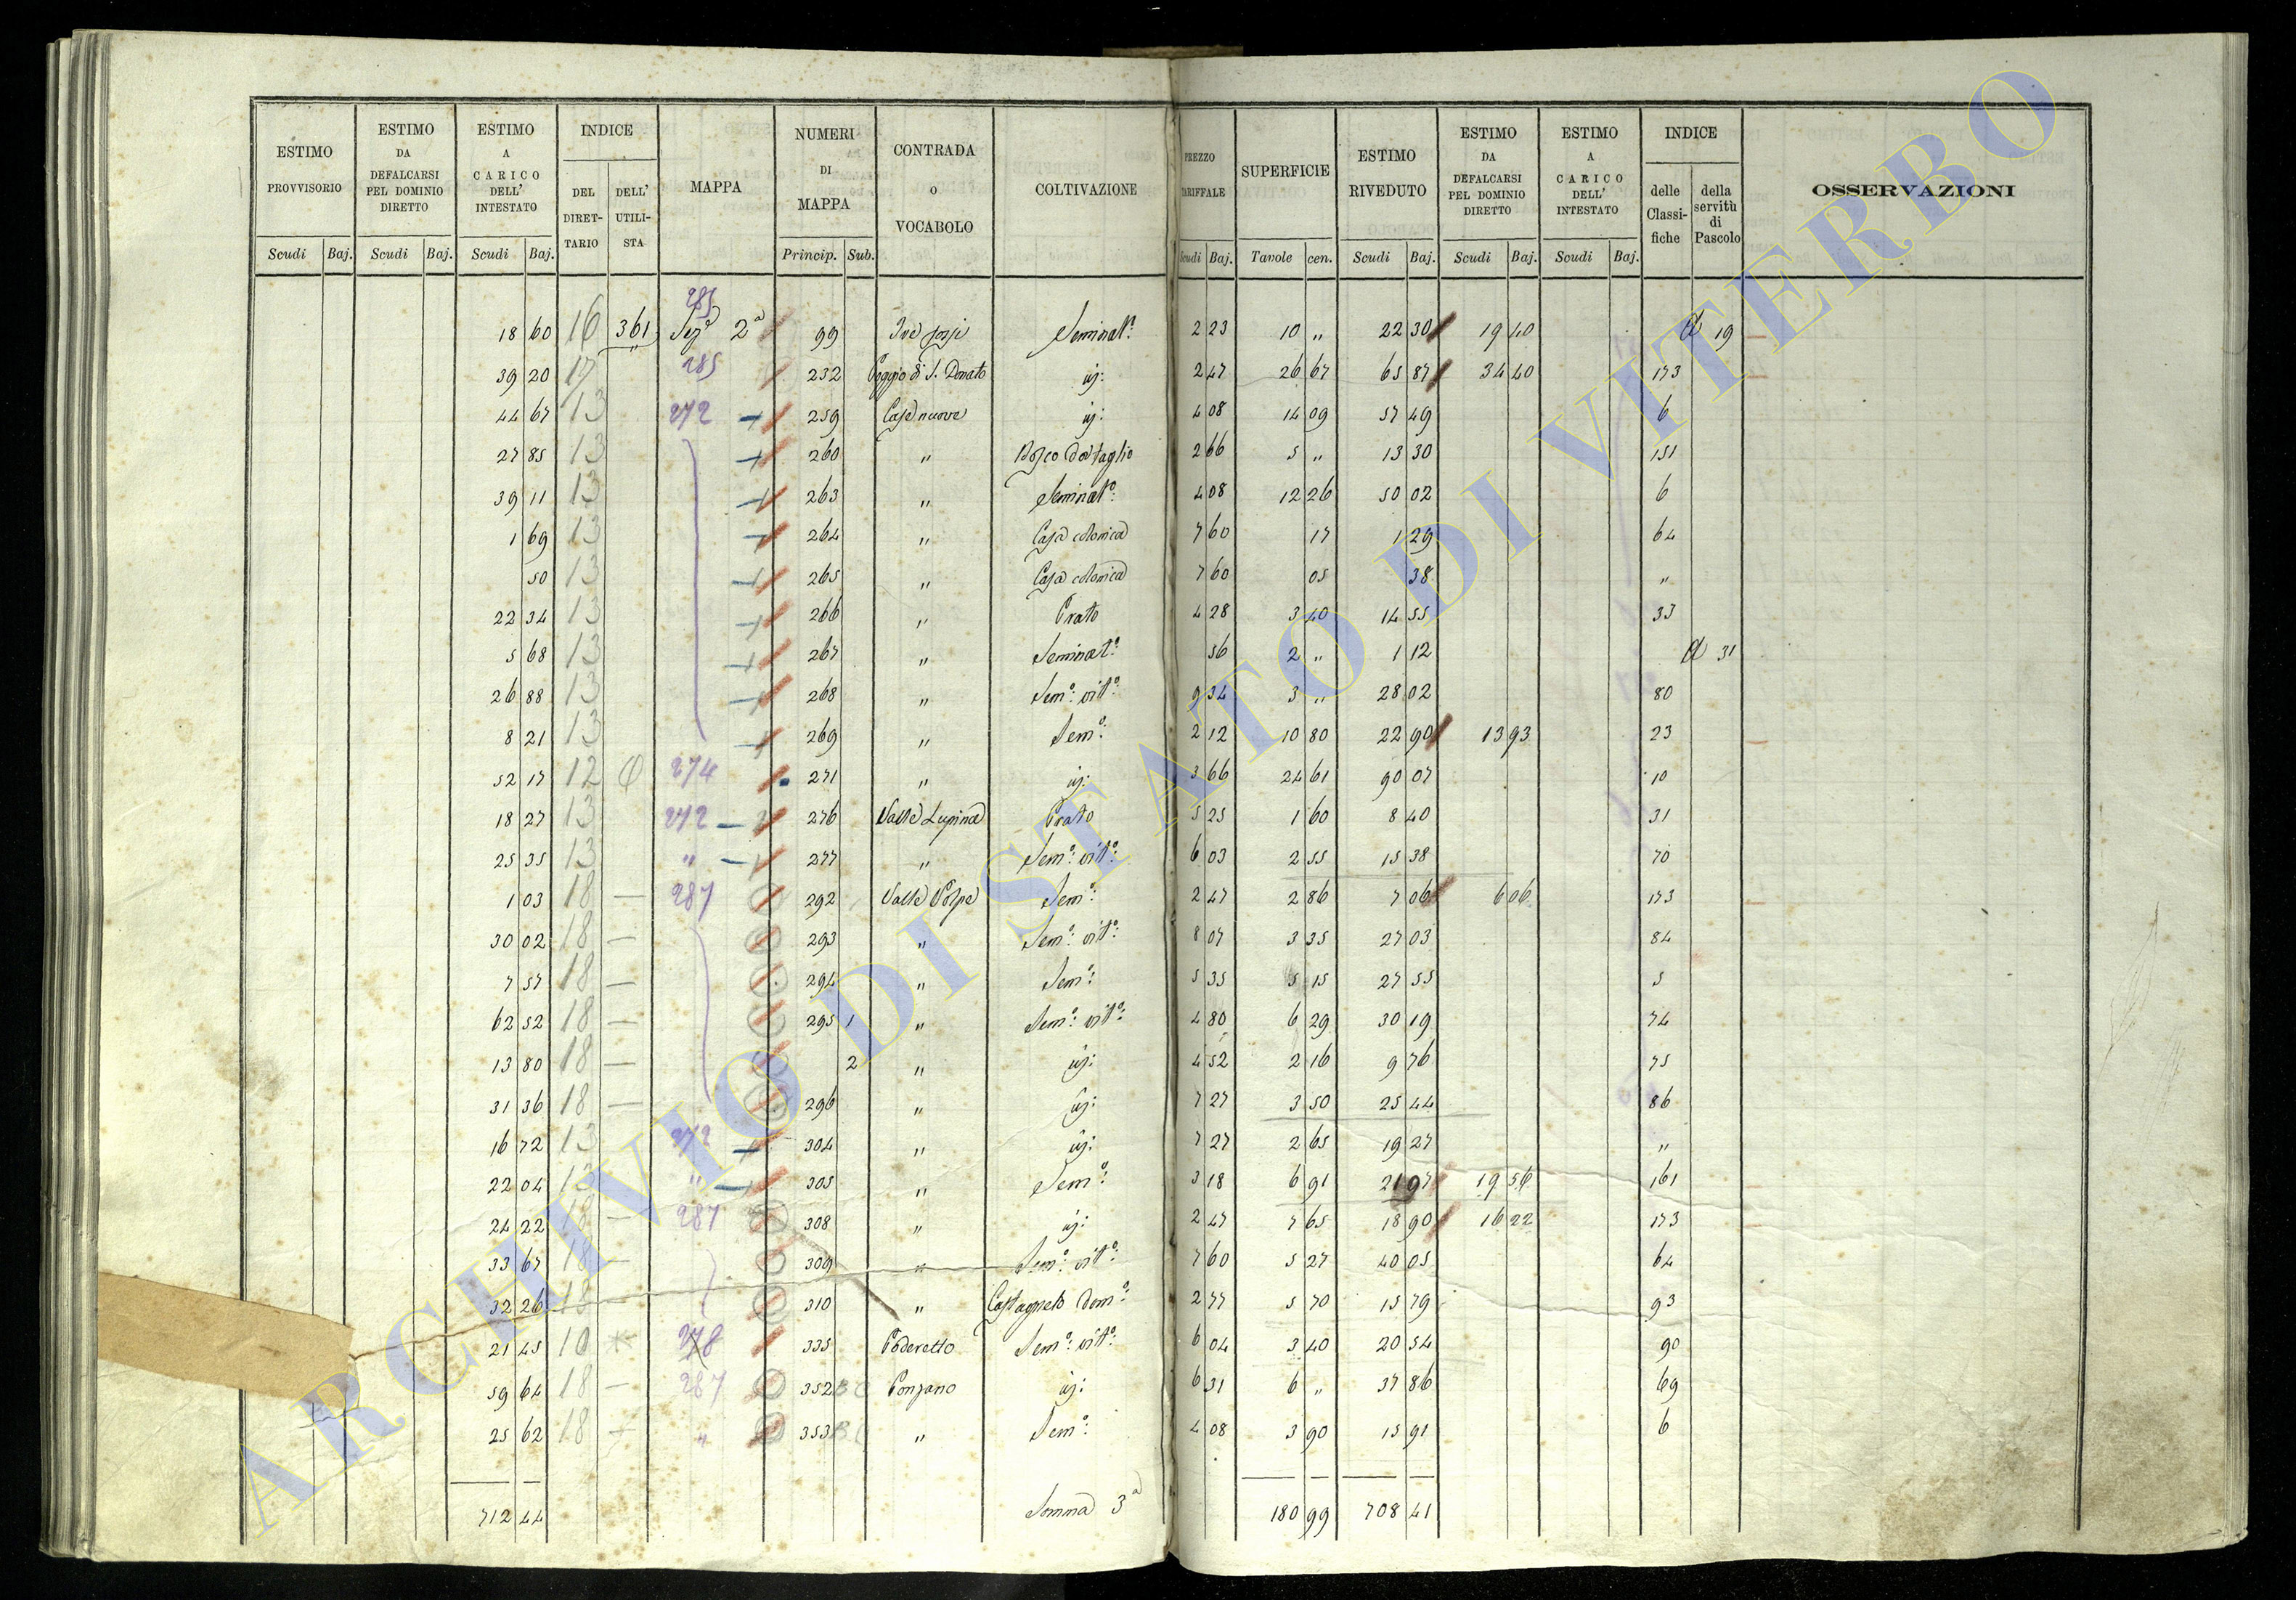 ESTIMO PROVVISORIO | ESTIMO DA DEFALCARSI PEL DOMINIO DIRETTO | ESTIMO A CARICO DELL' INTESTATO | INDICE DEL DIRETTARIO | DELL' UTILISTA | MAPPA | NUMERI DI MAPPA | CONTRADA O VOCABOLO | COLTIVAZIONE | PREZZO TARIFFALE | SUPERFICIE | ESTIMO RIVEDUTO | ESTIMO DA DEFALCARSI PEL DOMINIO DIRETTO | ESTIMO A CARICO DELL' INTESTATO | INDICE delle Classifiche | della servitù di Pascolo | OSSERVAZIONI
Scudi Baj. Scudi Baj. Scudi Baj. Princip. Sub. Scudi Baj. Tavole cen. Scudi Baj. Scudi Baj. Scudi Baj.
285
18 60 16 361 Sezª 2ª 99 Seminatº: 2 23 10 " 22 30 19 40 a 19
39 20 17 285 232 Poggio di S. Donato id: 2 47 26 67 65 87 34 40 173
44 67 13 272 259 Case nuove id: 4 08 14 09 57 49 6
27 85 13 260 " Bosco da taglio 2 66 5 " 13 30 151
39 11 13 263 " Seminatº: 4 08 12 26 50 02 6
1 69 13 264 " Casa colonica 7 60 17 1 29 64
50 13 265 " Casa colonica 7 60 05 38 "
22 34 13 266 " Prato 4 28 3 40 14 55 33
5 68 13 267 " Seminatº: 56 2 " 1 12 a 31
26 88 13 268 " Semº: vitº: 9 34 3 " 28 02 80
8 21 13 269 " Semº: 2 12 10 80 22 90 13 93 23
52 17 12 274 271 " id: 3 66 24 61 90 07 10
18 27 13 272 276 Valle Lupina Prato 5 25 1 60 8 40 31
25 35 13 " 277 " Semº: vitº: 6 03 2 55 15 38 70
1 03 18 — 287 292 Valle Volpe Semº: 2 47 2 86 7 06 6 06 173
30 02 18 — 293 " Semº: vitº: 8 07 3 35 27 03 84
7 57 18 — 294 " Semº: 5 35 5 15 27 55 5
62 52 18 — 295 1 " Semº: vitº: 4 80 6 29 30 19 74
13 80 18 — 2 " id: 4 52 2 16 9 76 75
31 36 18 — 296 " id: 7 27 3 50 25 44 86
16 72 13 272 304 " id: 7 27 2 65 19 27 "
22 04 13 " 305 " Semº: 3 18 6 91 21 97 19 56 161
24 22 18 — 287 308 " id: 2 47 7 65 18 90 16 22 173
33 67 18 — 309 " Semº: vitº: 7 60 5 27 40 05 64
32 26 18 — 310 " Castagneto domº: 2 77 5 70 15 79 93
21 45 10 278 335 Poderetto Semº: vitº: 6 04 3 40 20 54 90
59 64 18 — 287 352 Ponzano id: 6 31 6 " 37 86 69
25 62 18 " 353 " Semº: 4 08 3 90 15 91 6
712 44 Somma 3ª 180 99 708 41
ARCHIVIO DI STATO DI VITERBO